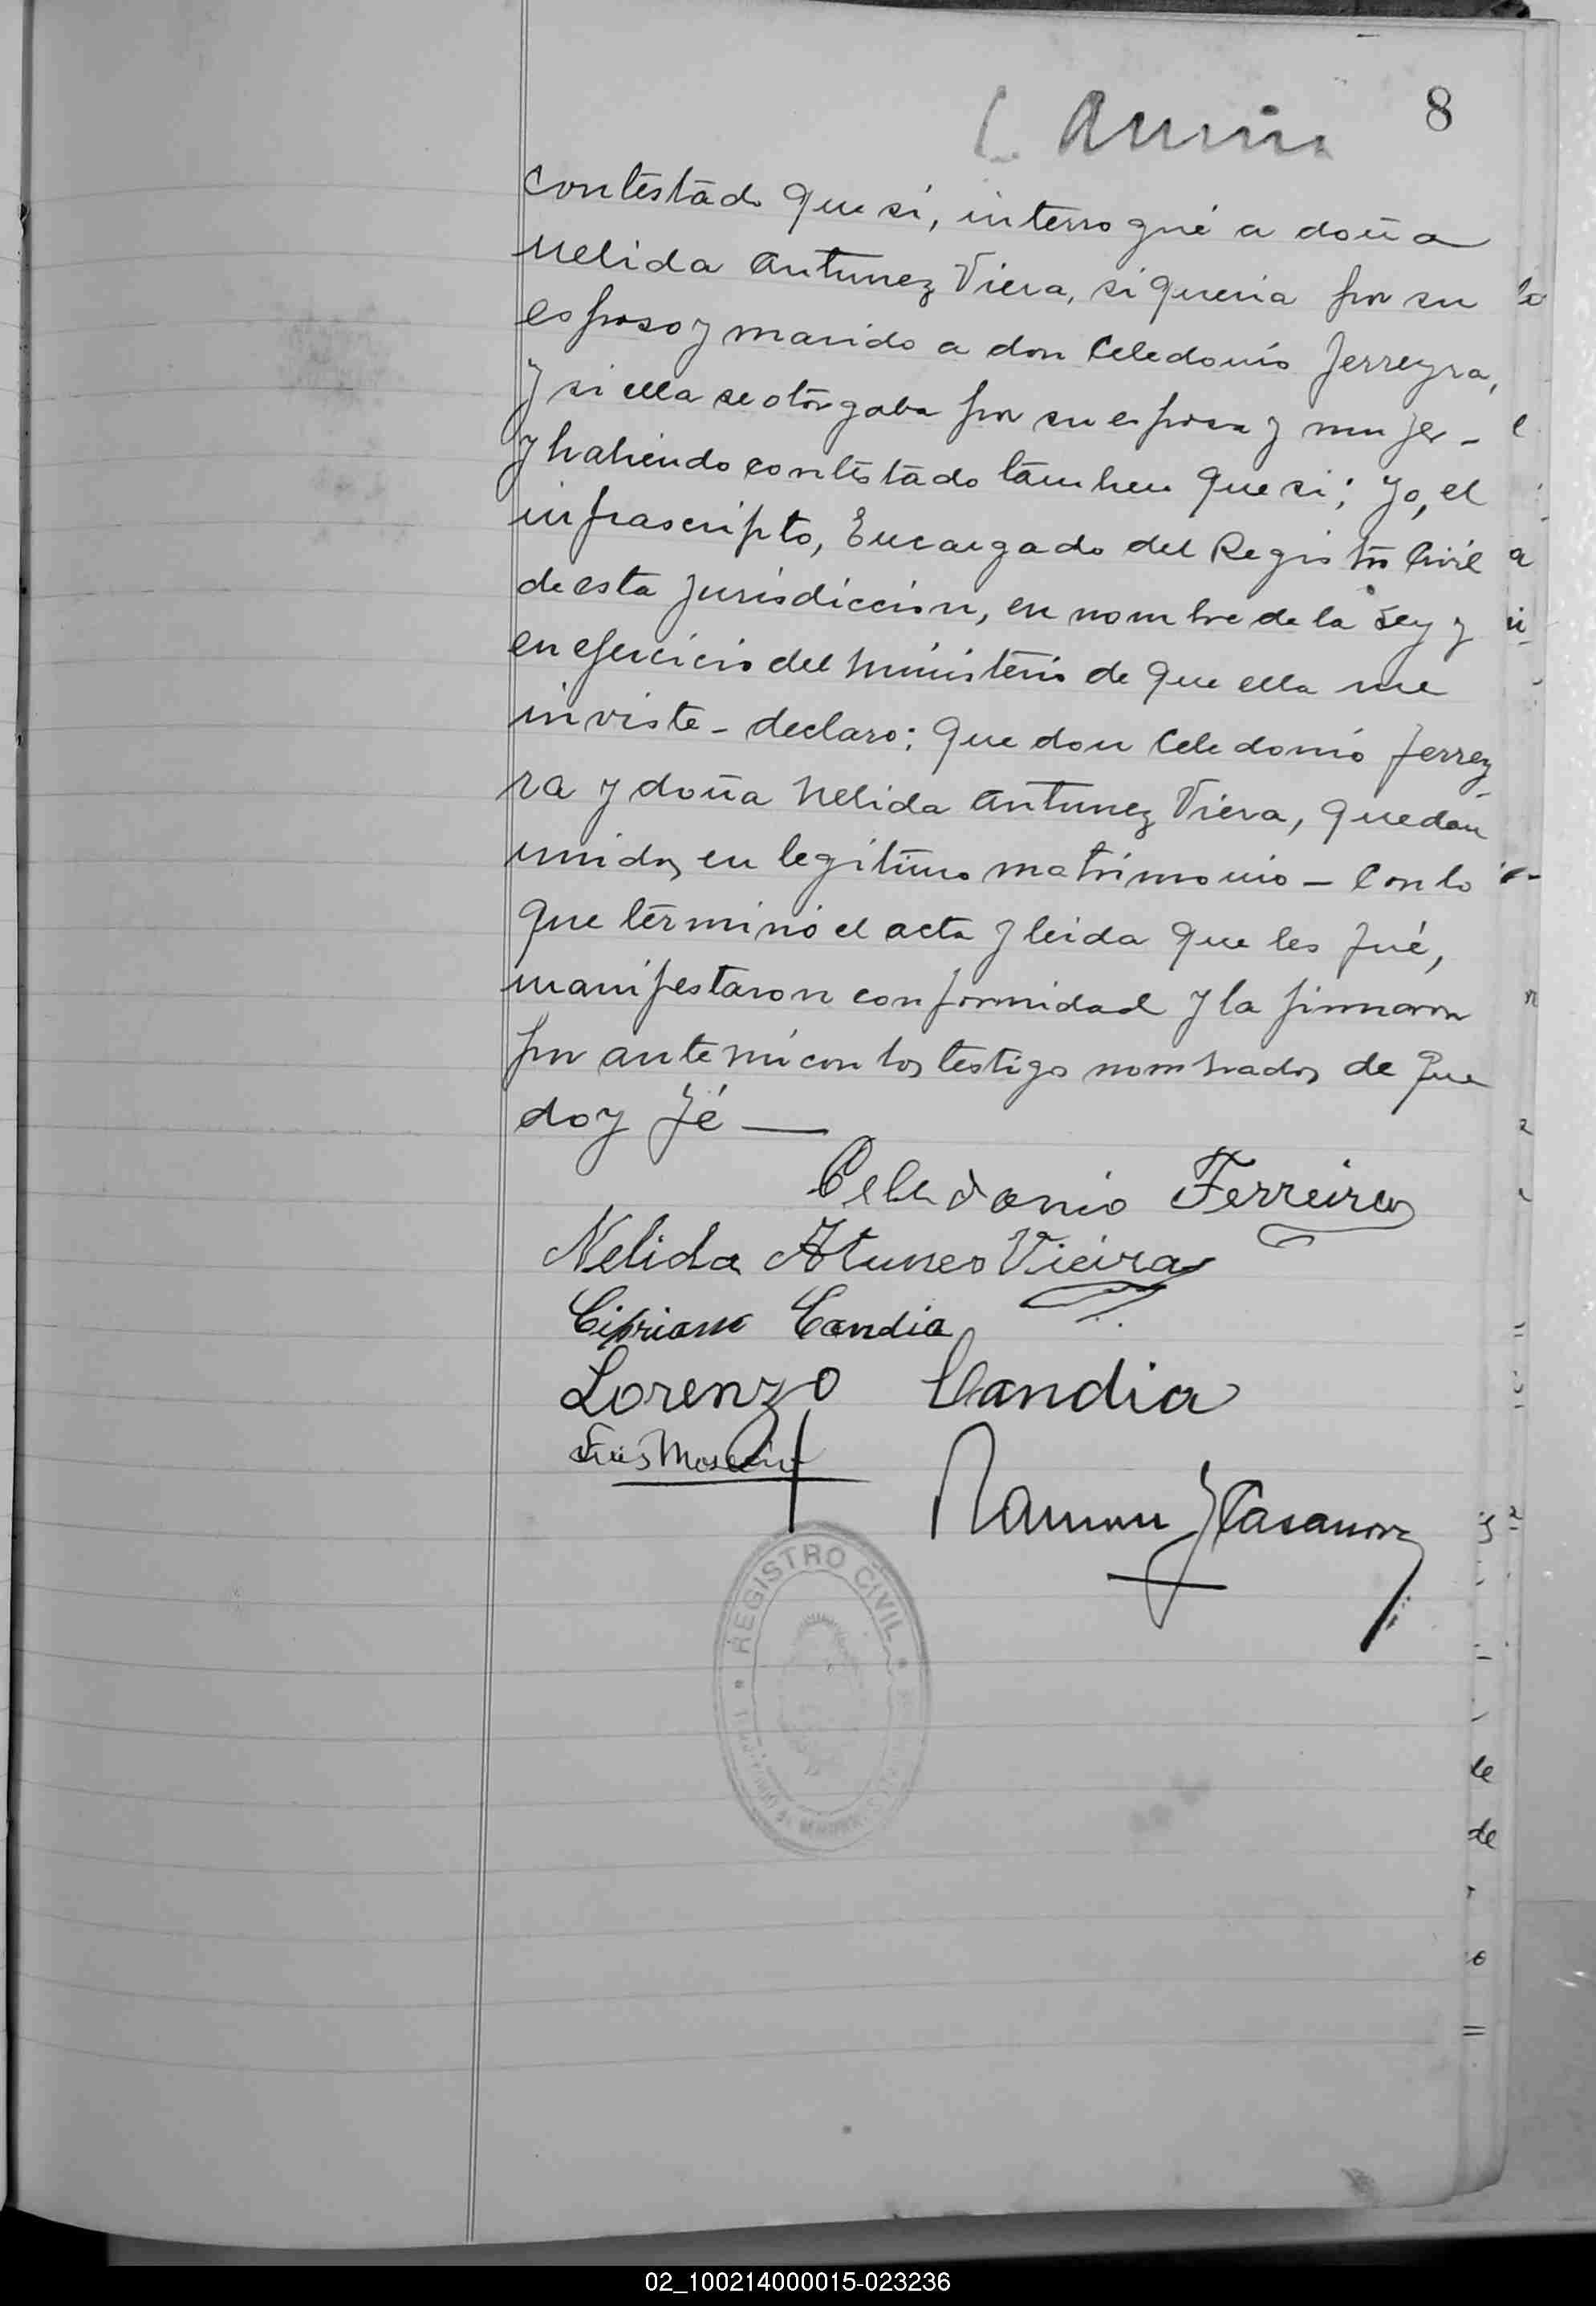 8
contestado que sí, interrogué a doña
Nelida Antunez Viera, si queria por su
esposo y marido a don Celedonio Ferreyra,
y si ella se otorgaba por su esposa y mujer -
y habiendo contestado tambien que si; Yo, el
infrascripto, Encargado del Registro Civil
de esta jurisdiccion, en nombre de la Ley y
en ejercicio del Ministerio de que ella me
inviste - declaro: Que don Celedonio Ferrey
ra y doña Nelida Antunez Viera, quedan
unidos en legitimo matrimonio - Con lo
que terminó el acta y leida que les fué,
manifestaron conformidad y la firmaron
por ante mi con los testigos nombrados de que
doy fé —
Celedonio Ferreira
Nelida Atunes Vieira
Cipriano Candia
Lorenzo Candia
Luis
Ramon J Casanova
REGISTRO CIVIL
02_100214000015-023236